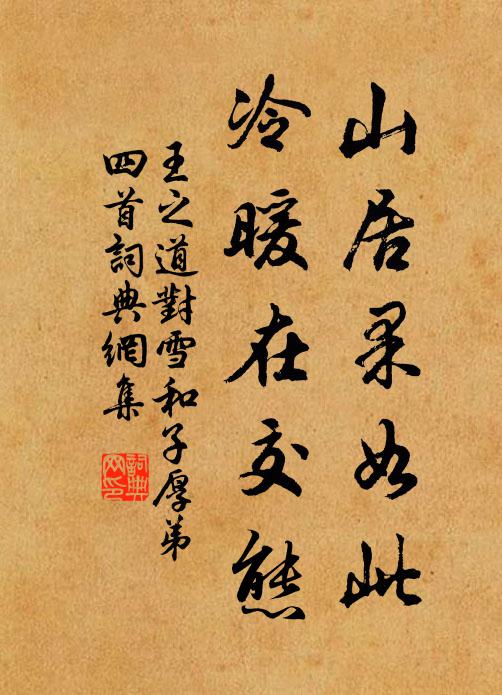 山居果如此
冷暖在交態
王之道對雪和子厚弟
四首詞典網集
詞典
網印